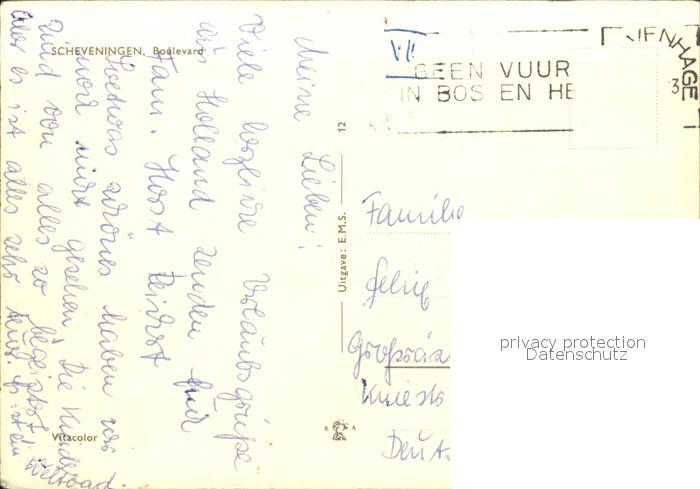 SCHEVENINGEN, Boulevard
Meine Lieben!
Viele herzliche Urlaubsgrüße
aus Holland senden
Fam. Horst
schönes haben wir
noch nicht gesehen, Die Kinder
sind von alles so begeistert
aber es ist alles sehr teuer. Es ist ein
Weltbad.
Vitacolor
Uitgave: E.M.S. 12
R A
VII
GEEN VUUR
IN BOS EN HE
HAGE
3
Familie
Deuts
privacy protection
Datenschutz